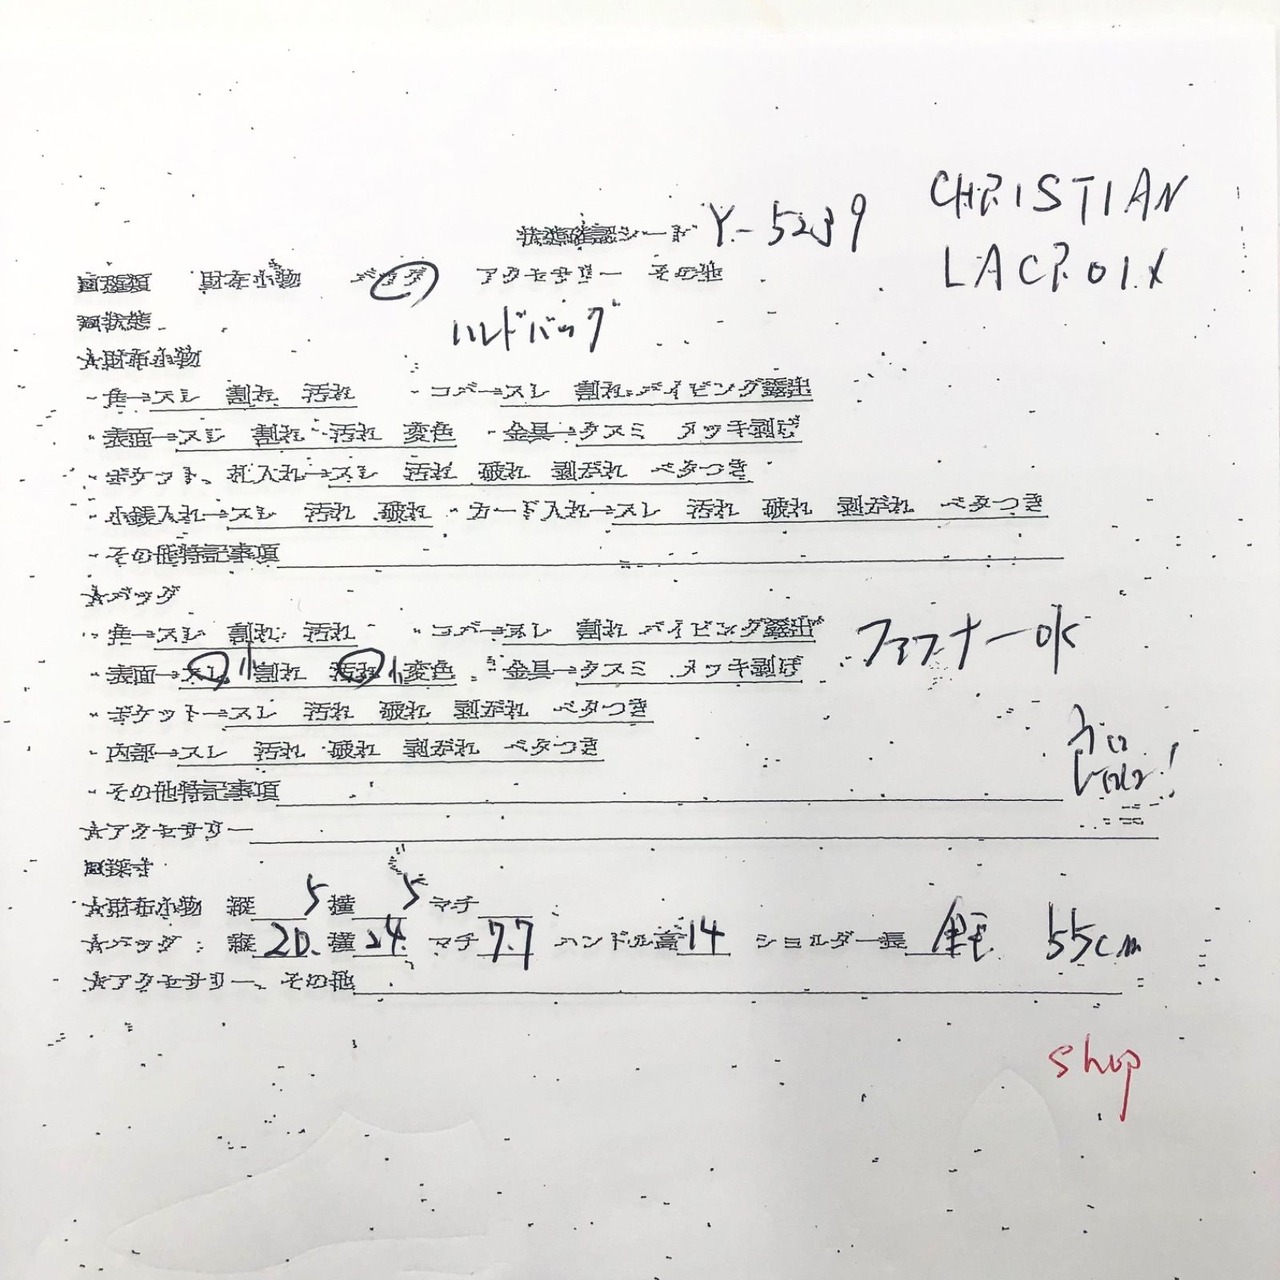 状態確認シート Y-5239 CHRISTIAN
LACROIX
■種類 財布小物 バッグ アクセサリー その他
■状態 ハンドバッグ
★財布小物
・角→スレ 割れ 汚れ ・コバ→スレ 割れ パイピング露出
・表面→スレ 割れ 汚れ 変色 ・金具→クスミ メッキ剥げ
・ポケット、札入れ→スレ 汚れ 破れ 剥がれ ベタつき
・小銭入れ→スレ 汚れ 破れ ・カード入れ→スレ 汚れ 破れ 剥がれ ベタつき
・その他特記事項
★バッグ
・角→スレ 割れ 汚れ ・コバ→スレ 割れ パイピング露出 ファスナーOK
・表面→スレ 小 割れ 汚れ 小 変色 ・金具→クスミ メッキ剥げ
・ポケット→スレ 汚れ 破れ 剥がれ ベタつき
・内部→スレ 汚れ 破れ 剥がれ ベタつき
・その他特記事項
★アクセサリー
■採寸
★財布小物 縦 5 横 5 マチ
★バッグ:縦 20. 横 24. マチ 7.7 ハンドル高 14 ショルダー長 55cm
★アクセサリー、その他
shop